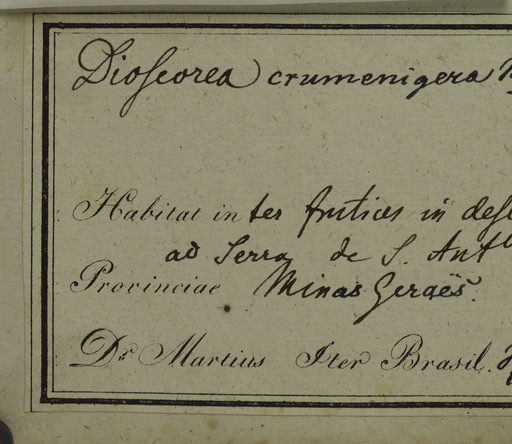 Dioscorea crumenigera
Habitat inter frutices in
ad Serra de S. Antº
Provinciae Minas Geraës.
Dr. Martius Iter Brasil.